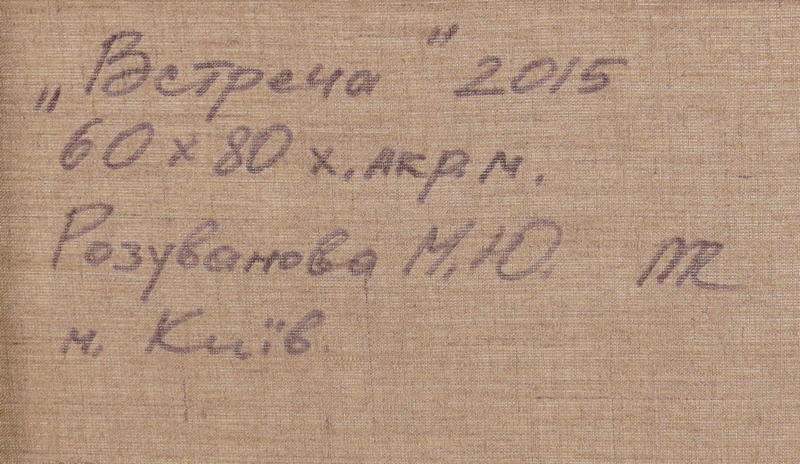 „Встреча" 2015
60 х 80 х. акр. м.
Розуванова М.Ю. МR
м. Київ.